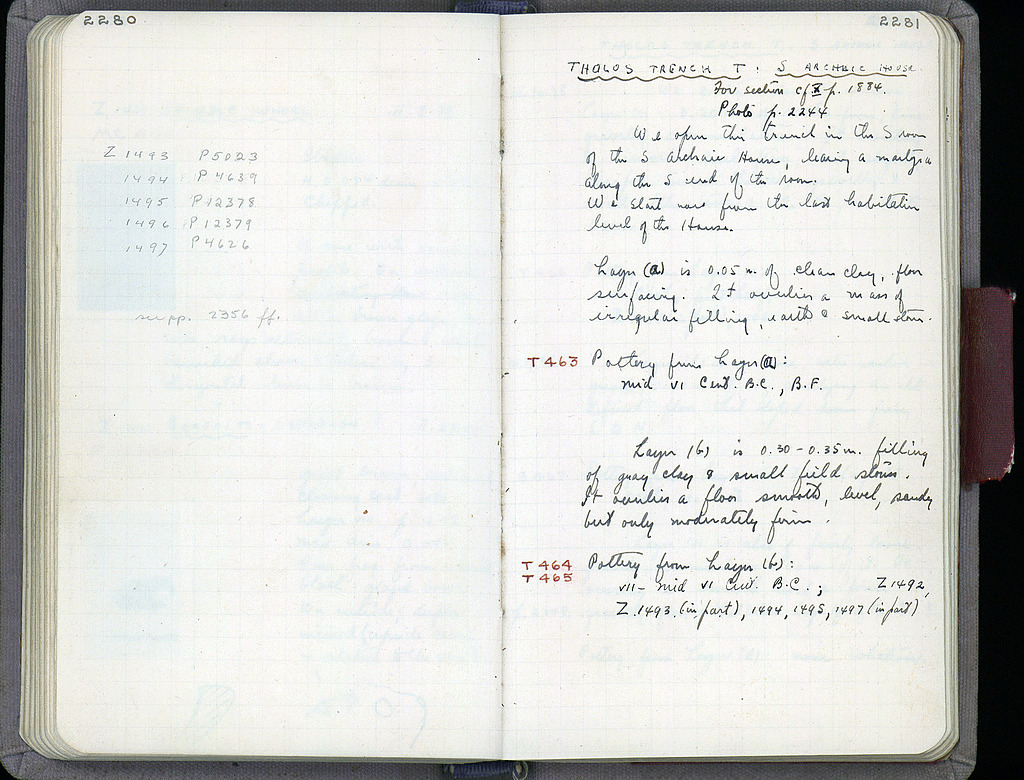 2280
Z 1493 P 5023
1494 P 4639
1495 P 12378
1496 P 12379
1497 P 4626
see pp. 2356 ff.
2281
THOLOS TRENCH T: S ARCHAIC HOUSE
For section cf X p. 1884.
Photo p. 2244
We open this trench in the S room
of the S Archaic House, leaving a martyra
along the S end of the room.
We start now from the last habitation
level of the House.
Layer (a) is 0.05 m. of clean clay, floor
surfacing. It overlies a mass of
irregular filling, earth & small stones.
T 463 Pottery from Layer (a):
mid VI Cent. B.C., B.F.
Layer (b) is 0.30 - 0.35 m. filling
of gray clay & small field stones.
It overlies a floor smooth, level, sandy
but only moderately firm.
T 464 Pottery from Layer (b):
T 465
VII - mid VI Cent. B.C.; Z 1492,
Z 1493 (in part), 1494, 1495, 1497 (in part)